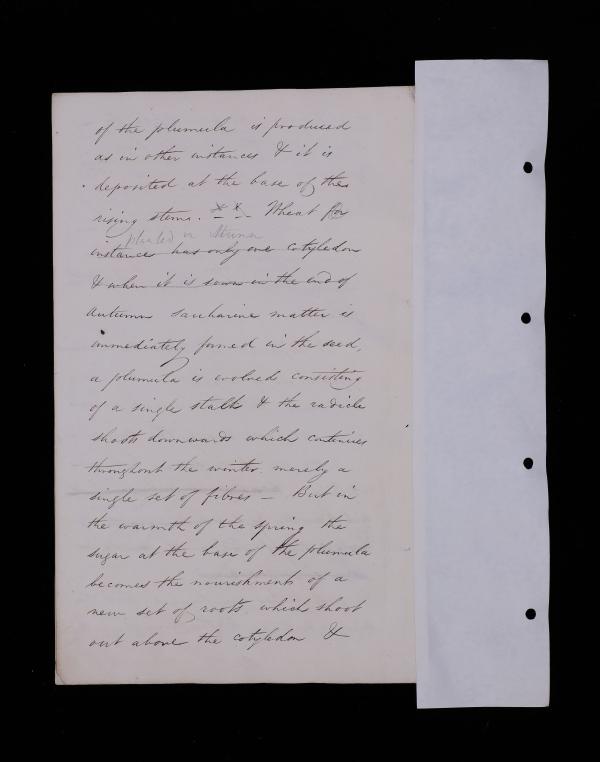 of the plumula is produced
as in other instances & it is
deposited at the base of the
rising stems. x x Wheat for
planted in
instance has only one cotyledon
& when it is sown in the end of
Autumn saccharine matter is
immediately formed in the seed,
a plumula is evolved consisting
of a single stalk & the radicle
shoots downwards which continues
throughout the winter merely a
single set of fibres — But in
the warmth of the spring the
sugar at the base of the plumula
becomes the nourishment of a
new set of roots which shoot
out above the cotyledon &